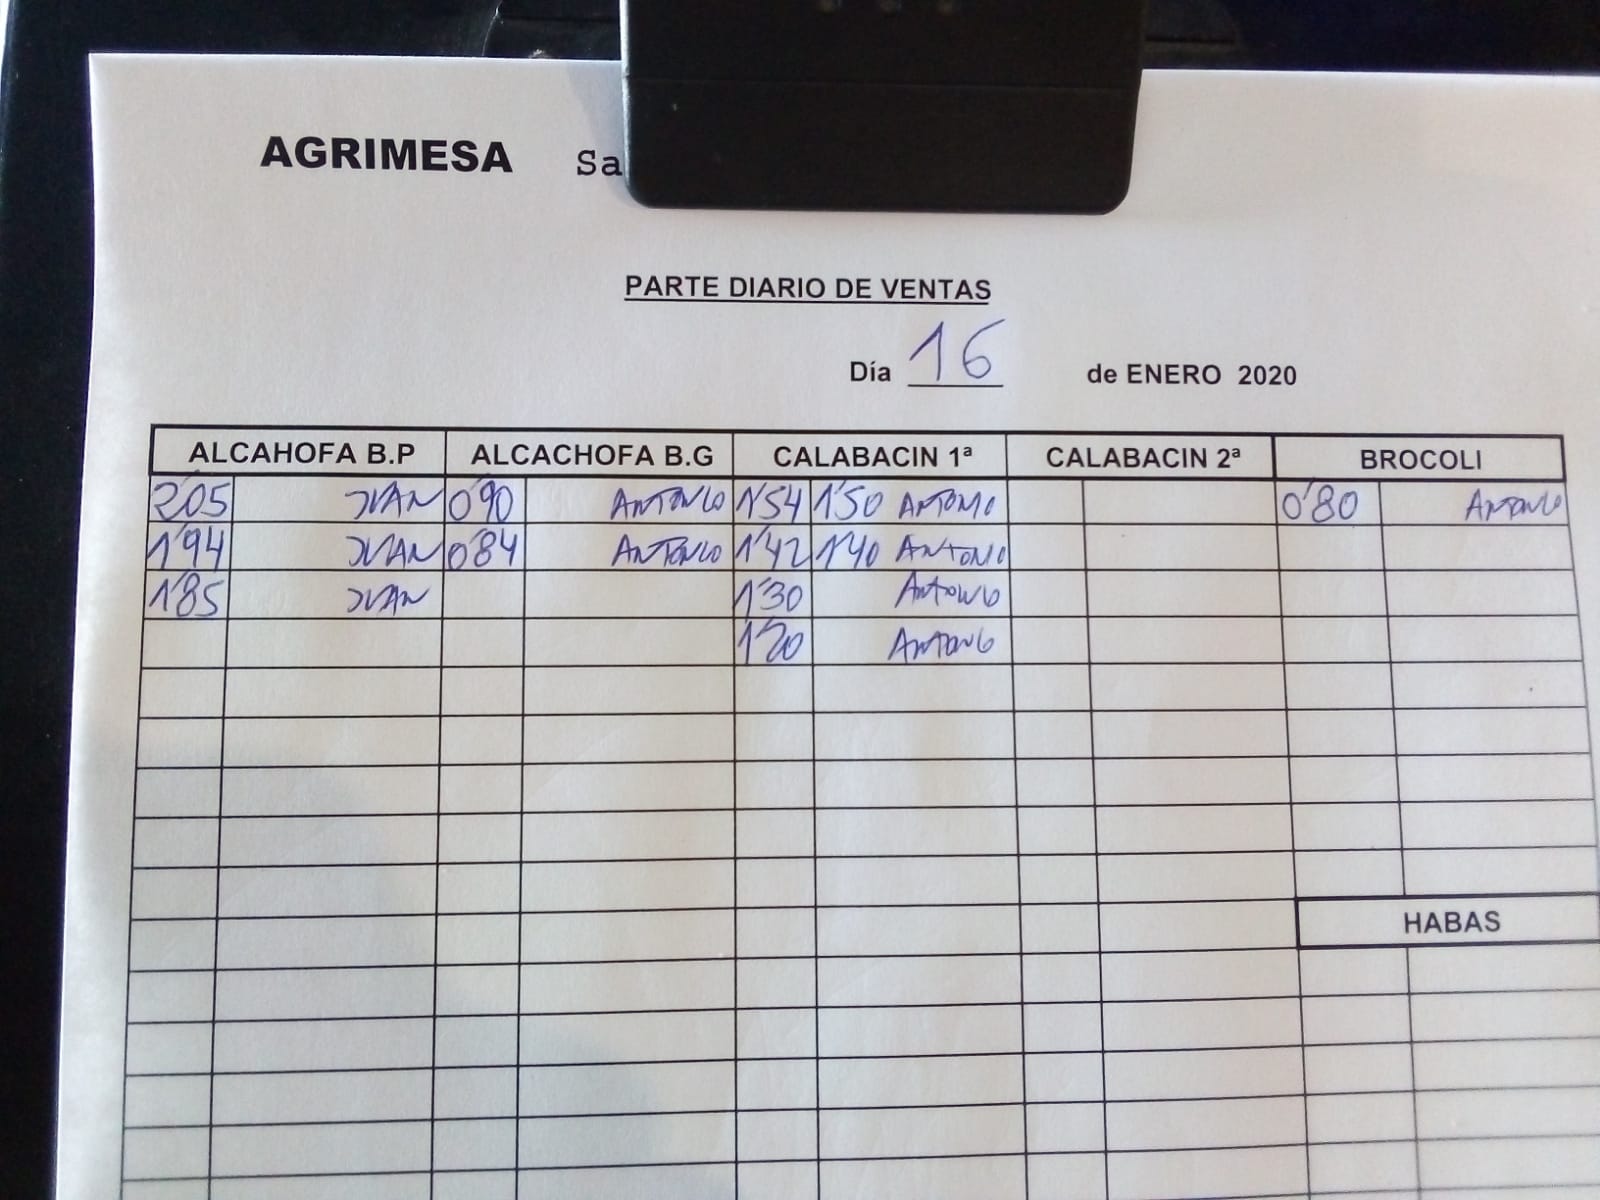 AGRIMESA Sa
PARTE DIARIO DE VENTAS
Día 16 de ENERO 2020
ALCAHOFA B.P ALCACHOFA B.G CALABACIN 1ª CALABACIN 2ª BROCOLI
2'05 JUAN 0'90 ANTONIO 1'54 1'50 ANTONIO 0'80 ANTONIO
1'94 JUAN 0'84 ANTONIO 1'42 1'40 ANTONIO
1'85 JUAN 1'30 ANTONIO
1'20 ANTONIO
HABAS